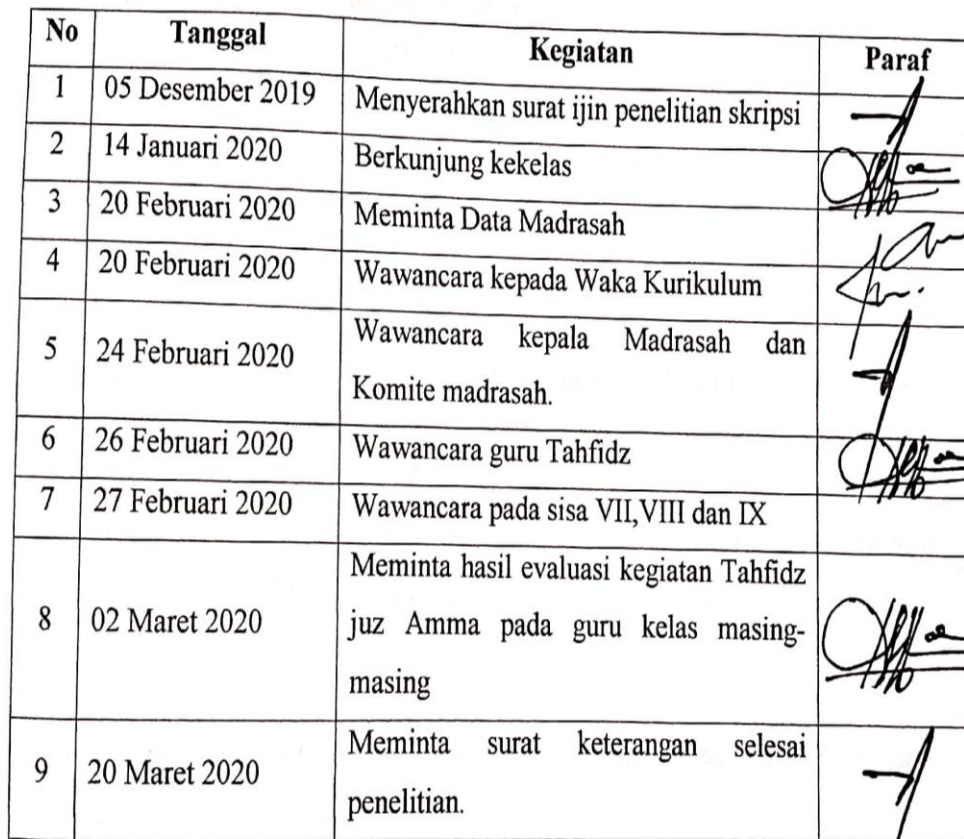 No Tanggal Kegiatan Paraf
1 05 Desember 2019 Menyerahkan surat ijin penelitian skripsi
2 14 Januari 2020 Berkunjung kekelas
3 20 Februari 2020 Meminta Data Madrasah
4 20 Februari 2020 Wawancara kepada Waka Kurikulum
5 24 Februari 2020 Wawancara kepala Madrasah dan
Komite madrasah.
6 26 Februari 2020 Wawancara guru Tahfidz
7 27 Februari 2020 Wawancara pada sisa VII,VIII dan IX
Meminta hasil evaluasi kegiatan Tahfidz
8 02 Maret 2020 juz Amma pada guru kelas masing-
masing
9 20 Maret 2020 Meminta surat keterangan selesai
penelitian.